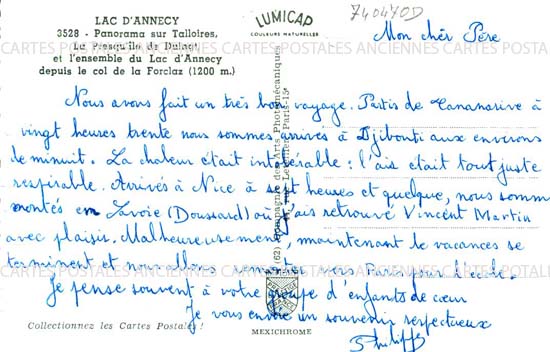 LAC D'ANNECY
3528 - Panorama sur Talloires,
La Presqu'île de Duingt
et l'ensemble du Lac d'Annecy
depuis le col de la Forclaz (1200 m.)
LUMICAP
COULEURS NATURELLES
740470D
Mon cher Père
CARTES POSTALES ANCIENNES CARTES POSTALES ANCIENNES CARTES POSTALES
Nous avons fait un très bon voyage. Partis de Tananarive à
vingt heures trente nous sommes arrivés à Djibouti aux environs
de minuit. La chaleur était intolérable : l'air était tout juste
respirable. Arrivés à Nice à sept heures et quelque, nous somm
montés en Savoie (Doussard) où j'ais retrouvé Vincent Martin
avec plaisir. Malheureusement, maintenant le vacances se
terminent et nous allons remonter vers Paris pour l'école.
CARTES POSTALES ANCIENNES CARTES POSTALES ANCIENNES CARTES POSTALES
Je pense souvent à votre groupe d'enfants de cœur
Je vous envoie un souvenir respectueux
Philippe
Collectionnez les Cartes Postales !
MEXICHROME
(62) Compagnie des Arts Photomécaniques
Paris-15e